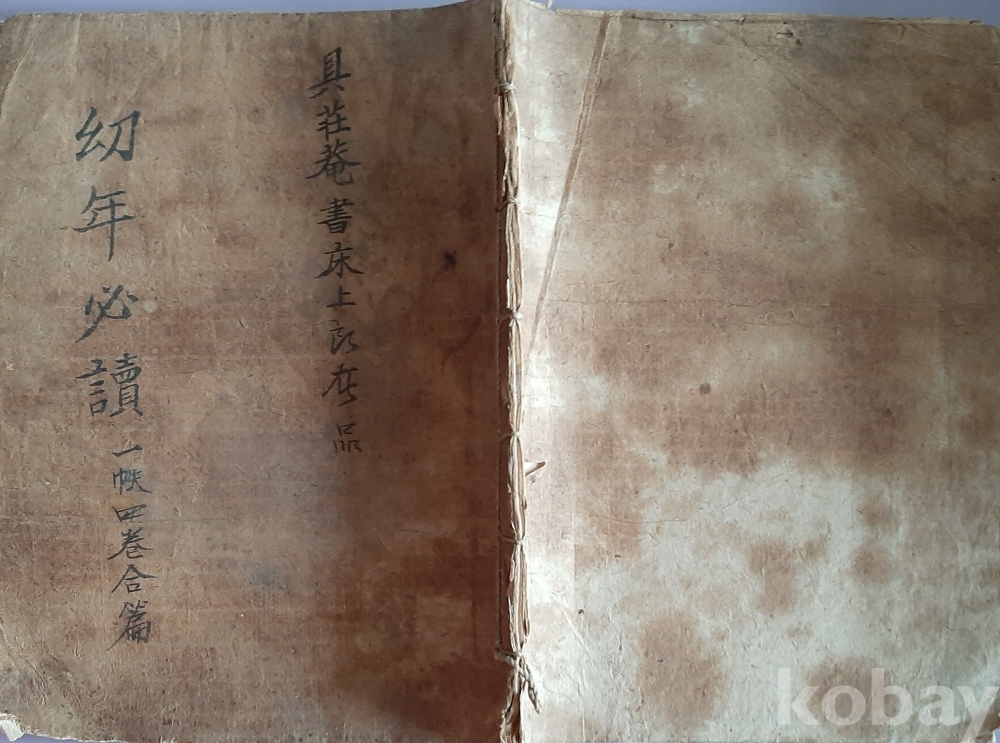 具莊菴書床上所在品
幼年必讀 一帙四卷合篇
kobay